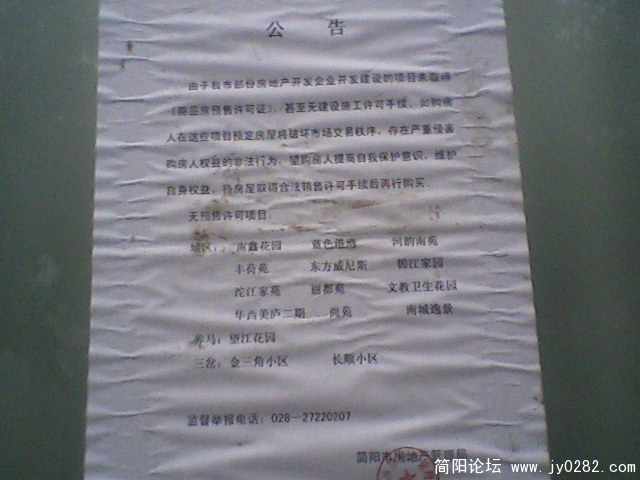 公告
由于我市部份房地产开发企业开发建设的项目未取得
《商品房预售许可证》、甚至无建设施工许可手续，如购房
人在这些项目预定房屋将破坏市场交易秩序，存在严重侵害
购房人权益的非法行为，望购房人提高自我保护意识、维护
自身权益，待房屋取得合法销售许可手续后再行购买。
无预售许可项目：
城区： 南鑫花园 蓝色逸湾 河韵南苑
丰荷苑 东方威尼斯 锦江家园
沱江家苑 丽都苑 文教卫生花园
华西美庐二期 尚苑 南城逸景
养马：望江花园
三岔：金三角小区 长顺小区
监督举报电话：028-27220207
简阳市房地产管理局
简阳论坛 www.jy0282.com